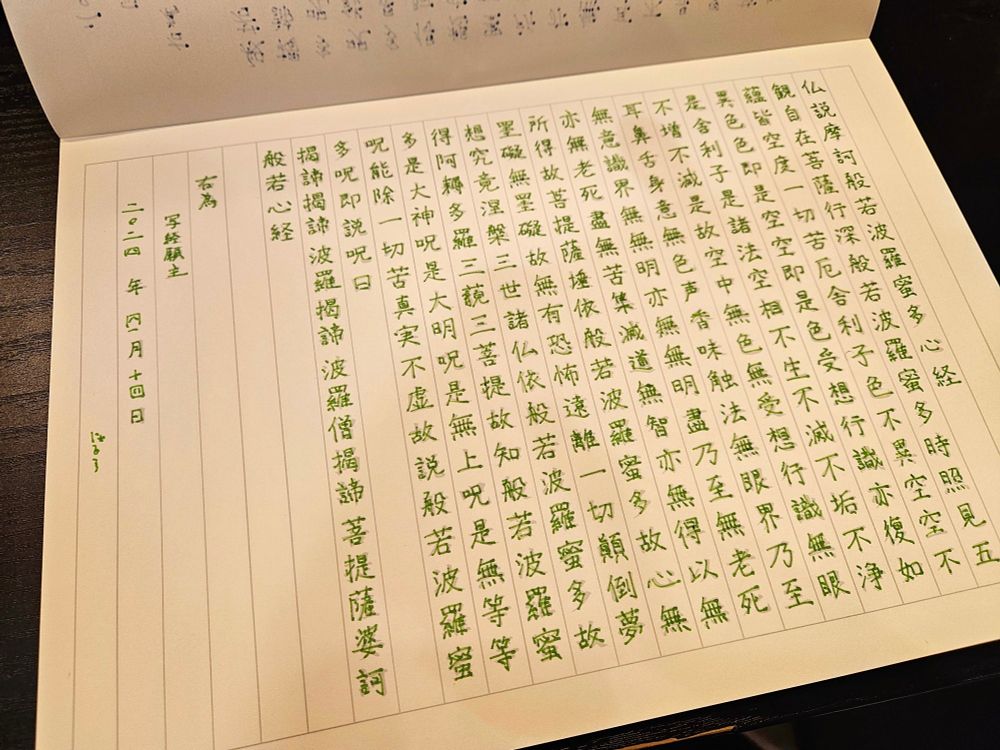 仏説摩訶般若波羅蜜多心経
観自在菩薩行深般若波羅蜜多時照見五
蘊皆空度一切苦厄舎利子色不異空空不
異色色即是空空即是色受想行識亦復如
是舎利子是諸法空相不生不滅不垢不浄
不増不減是故空中無色無受想行識無眼
耳鼻舌身意無色声香味触法無眼界乃至
無意識界無無明亦無無明盡乃至無老死
亦無老死盡無苦集滅道無智亦無得以無
所得故菩提薩埵依般若波羅蜜多故心無
罣礙無罣礙故無有恐怖遠離一切顛倒夢
想究竟涅槃三世諸仏依般若波羅蜜多故
得阿耨多羅三藐三菩提故知般若波羅蜜
多是大神呪是大明呪是無上呪是無等等
呪能除一切苦真実不虚故説般若波羅蜜
多呪即説呪曰
揭諦揭諦波羅揭諦波羅僧揭諦菩提薩婆訶
般若心経
右為
写経願主
二〇二四年
月十四日